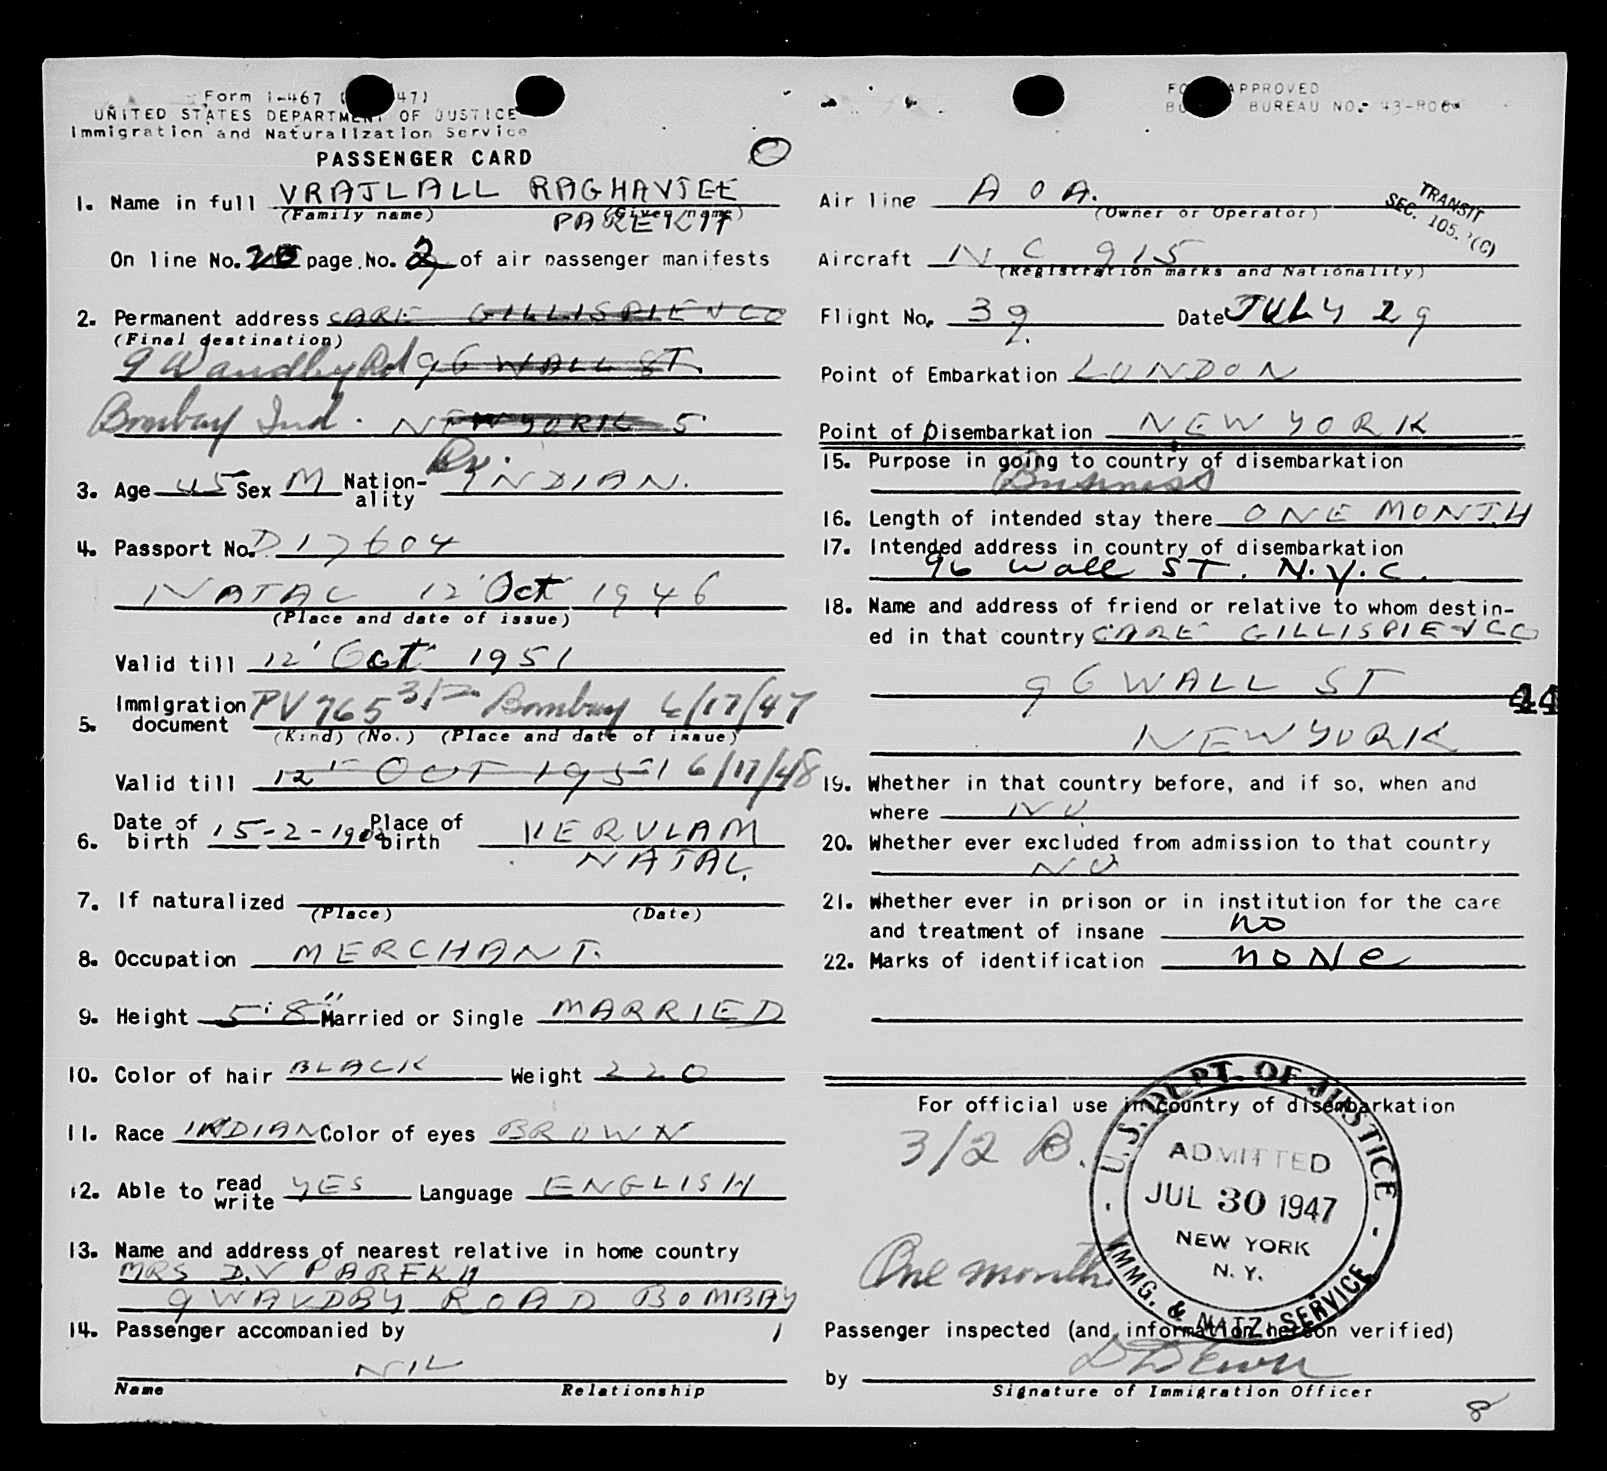 Form I-467 ( 47)
UNITED STATES DEPARTMENT OF JUSTICE
Immigration and Naturalization Service
PASSENGER CARD
1. Name in full VRAJLALL RAGHAVJEE
(Family name) (Given name)
PAREKH
On line No. 20 page No. 2 of air passenger manifests
2. Permanent address CARE GILLISPIE N CO
(Final destination)
9 Waudby Rd 96 WALL ST.
Bombay Ind. NEW YORK 5
Br.
3. Age 45 Sex M Nationality INDIAN.
4. Passport No. D 17604
NATAL 12 Oct 1946
(Place and date of issue)
Valid till 12' Oct 1951
5. Immigration document PV 765 3/2 Bombay 6/17/47
(Kind) (No.) (Place and date of issue)
Valid till 12' OCT 1951 6/17/48
6. Date of birth 15-2-1902 Place of birth VERULAM
NATAL.
7. If naturalized
(Place) (Date)
8. Occupation MERCHANT.
9. Height 5' 8" Married or Single MARRIED
10. Color of hair BLACK Weight 220
11. Race INDIAN Color of eyes BROWN
12. Able to read write YES Language ENGLISH
13. Name and address of nearest relative in home country
MRS D.V PAREKH
9 WAUDBY ROAD BOMBAY
14. Passenger accompanied by 1
NIL
Name Relationship
FORM APPROVED
BUREAU NO. 43-R064
Air line A O A.
(Owner or Operator)
TRANSIT
SEC. 105. (C)
Aircraft NC 915
(Registration marks and Nationality)
Flight No. 39 Date JULY 29
Point of Embarkation LONDON
Point of Disembarkation NEW YORK
15. Purpose in going to country of disembarkation
Business
16. Length of intended stay there ONE MONTH
17. Intended address in country of disembarkation
96 Wall ST. N.Y.C.
18. Name and address of friend or relative to whom destin-
ed in that country CARE GILLISPIE N CO
96 WALL ST
44
NEW YORK
19. Whether in that country before, and if so, when and
where NO
20. Whether ever excluded from admission to that country
NO
21. Whether ever in prison or in institution for the care
and treatment of insane no
22. Marks of identification none
For official use in country of disembarkation
3/2 B.
One month
U.S. DEPT. OF JUSTICE
ADMITTED
JUL 30 1947
NEW YORK
N. Y.
IMMG. & NATZ. SERVICE
Passenger inspected (and information hereon verified)
by
Signature of Immigration Officer
8